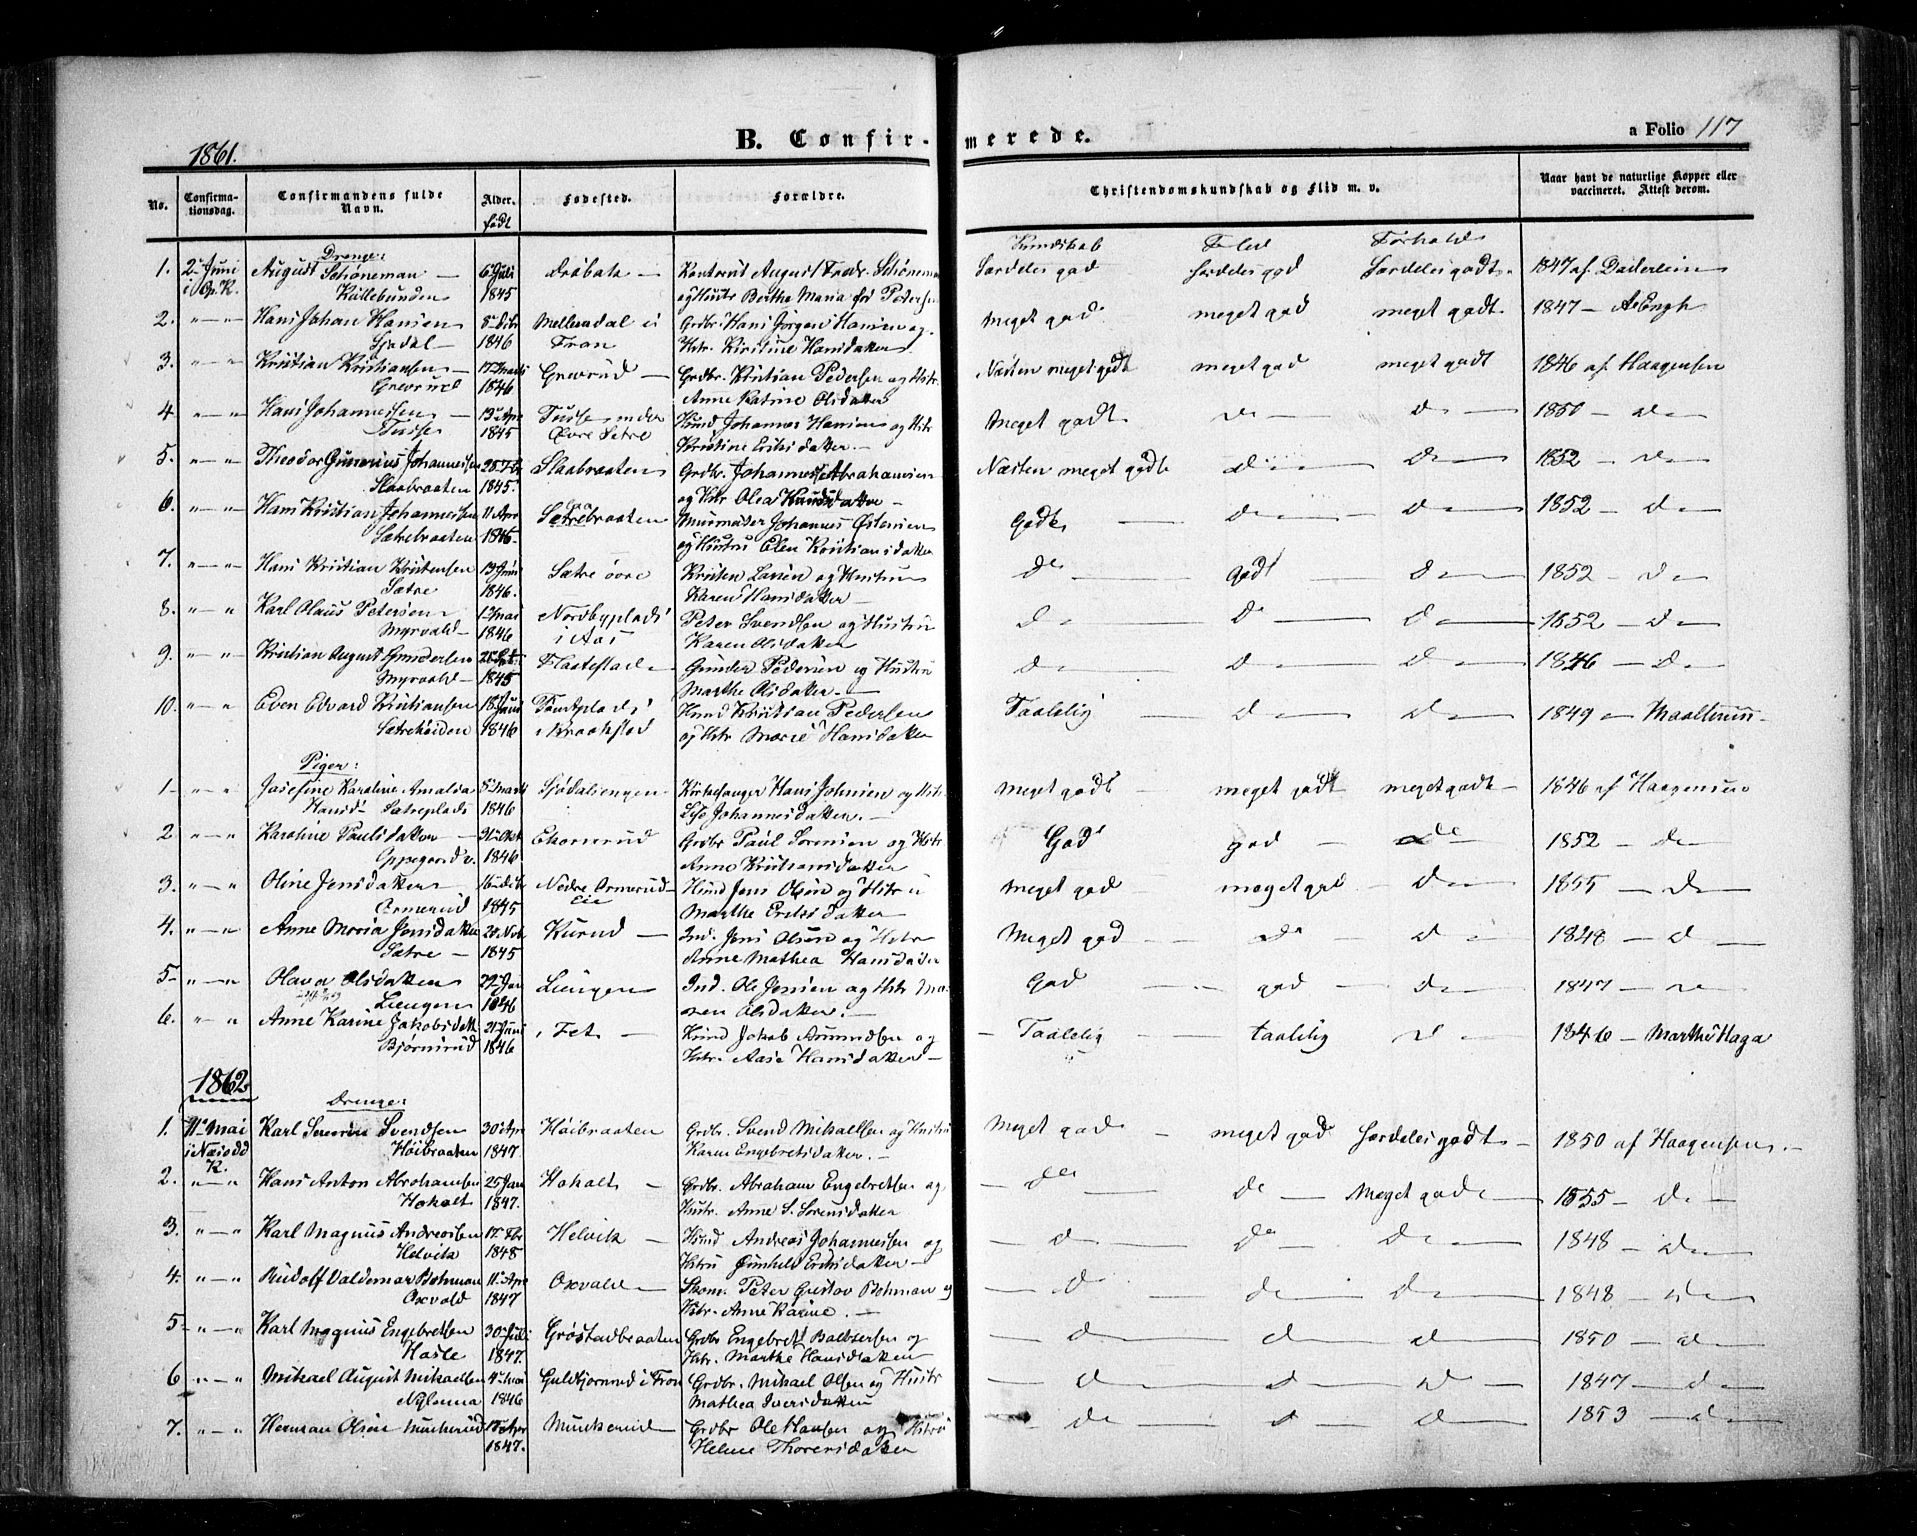 B. Confir-merede.
a Folio 117
1861.
No. Confirmationsdag. Confirmandens fulde Navn. Alder. født Fødested. Forældre. Christendomskundskab og Flid m. v. Naar havt de naturlige Kopper eller vaccineret. Attest derom.
Drenge: Kundskab Flid Forhold
1. 2. Juni August Schöneman — 6 Juli Drøbak — August Fredr. Schöneman Særdeles god særdeles god særdeles godt 1847 af
i Op. K. Kullebunden 1845 og Hustr Berthe Maria Pedersen
2. " — " Hans Johan Hansen Mellumdal i Grdbr. Hans Jørgen Hansen og Meget god meget god meget godt 1847 — A. Engh
1846 Fron Hstr. Kirstine Hansdatter
3. " — " Kristian Kristiansen — 17 Marts Grevrud — Grdbr. Kristian Pedersen og Hstr. Næsten meget godt meget god meget godt 1846 af Haagensen
Grevrud 1846 Anne Katrine Olsdatter
4. " — " Hans Johannessen — 19 Apr Tusse under Hmd Johannes Hansen og Hstr Meget godt do — do — 1850 — do
Tusse 1845 Øvre Sætre Kristine Eriksdatter —
5. " — " Theodor Gunerius Johannessen Slaabraaten Grdbr. Johannes Abrahamsen Næsten meget godt do — do — 1852 — do
Slaabraaten 1845. og Hstr Olea Knudsdatter —
6. " — " Hans Kristian Johannessen 11 Apr Sætrebraaten Murmester Johannes Østensen Godt — do — do — 1852 — do
Sætrebraaten 1846. og Hustru Elen Kristiansdatter
7. " — " Hans Kristian Kristensen 13 Juni Sætre øvre Kristen Larsen og Hustru do — godt do — 1852 — do
Sætre 1846. Karen Hansdatter —
8. " — " Karl Olaus Petersen 12 Mai Nordbyplads Peter Svendsen og Hustru do — do — do — 1852 — do
Myrvold — 1846 i Aas Karen Olsdatter
9. " — " Kristian August Gundersen Flaatestad Gunder Pedersen og Hustru do — do — do — 1846 — do
Myrvold — 1845 Marthe Olsdatter —
10. " — " Even Edvard Kristiansen 18 Juni Hmd Kristian Pedersen Taalelig — do — do — 1849 —
1846 Kraakstad og Hstr Marie Hansdatter
Piger:
1 " — " Josefine Karoline Amalia 5 Marts Sjødalengen Kirkesanger Hans Johnsen og Hstr. Meget godt — meget godt meget godt — 1846 af Haagensen
Hansd. Sætreplads 1846 Lise Johannesdatter. —
2 " — " Karoline Paulsdatter — 31 Okt Ekornrud Grdbr Paul Sørensen og Hstr God god — do 1852 — do
Oppegaard v. 1846 Anne Kristiansdatter
3. " — " Oline Jensdatter 16 Dec Nedre Ormerud Hmd Jens Olsen og Hstru Meget god meget god — do 1855 — do
Ormerud 1845 Eie Marthe Eriksdatter
4. " — " Anne Maria Jensdatter 20 Nov. Kurud — Ind. Jens Olsen og Hstr Meget god — do — do 1848 — do
Sætre — 1845 Anne Mathea Hansdatter
5 — " — " Olava Olsdatter 29 Jan Liengen Ind. Ole Jensen og Hstr Ma- God god — do 1847 — do
Liengen 1846 ren Olsdatter. —
6. " — " Anne Karine Jakobsdatter 21 Juni Fet — Hmd Jakob Amundsen og Taalelig taalelig do 1846 — Marthe Haga
Bjørnsrud 1846 Hstr. Aase Hansdatter —
1862
Drenge:
1. 11 Mai Karl Severin Svendsen 30 Apr Høibraaten Grdbr. Svend Mikaelsen og Hustru Meget god — meget god særdeles godt — 1850 af Haagensen. —
i Næsodd Høibraaten 1847. Karen Engebretsdatter. —
K.
2. " — " Hans Anton Abrahamsen 25 Jan Hokolt — Grdbr. Abraham Engebretsen og — do — do — Meget godt — 1855 — do —
Hokolt 1847. Hustr. Anne S. Sørensdatter
3. " — " Karl Magnus Andreassen 17 Fbr Helvik — Hmd Andreas Johannessen og — do — do — do — 1848 — do
Helvik 1848 Hstru Gunhild Eriksdatter —
4. " — " Rudolf Valdemar Bohman 11 Apr Oxvald — Skom. Peter Gustav Bohman og — do — do — do — 1848 — do
Oxvald 1847 Hstr. Anne Karine. —
5 " — " Karl Magnus Engebretsen 30 Juli Grøstadbraaten Grdbr Engebret Baltzersen og — do — do — do — 1850 — do
Hasle 1847. Hstr. Marthe Hansdatter
6 " — " Mikael August Mikaelsen 4 Mai Guldbjørnrud i Fron Grdbr. Mikael Olsen og Hustr — do — do — do — 1847 — do
Nylenna 1846 Mathea Iversdatter
7. " — " Herman Olsen Munkerud 17 Apr Munkerud Grdbr Ole Hansen og Hstru — do — do — do — 1853 — do
1847. Helene Thoresdatter